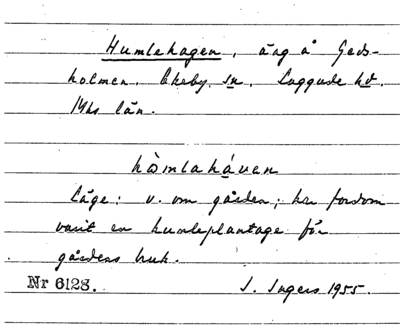 Humlehagen, äng å Geds-
holmen. Ekeby sn. Luggude hd.
Mhs län.
hòmlahávan
Läge: v. om gården; har fordom
varit en humleplantage för
gårdens bruk.
Nr 6128. I. Ingers 1955.